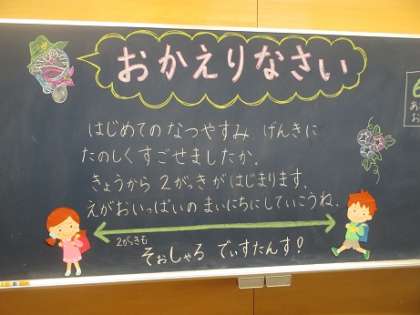 おかえりなさい
はじめての なつやすみ げんきに
たのしく すごせましたか.
きょうから 2がっき が はじまります.
えがおいっぱいの まいにちに していこうね.
2がっきも
そぉしゃる でぃすたんす!